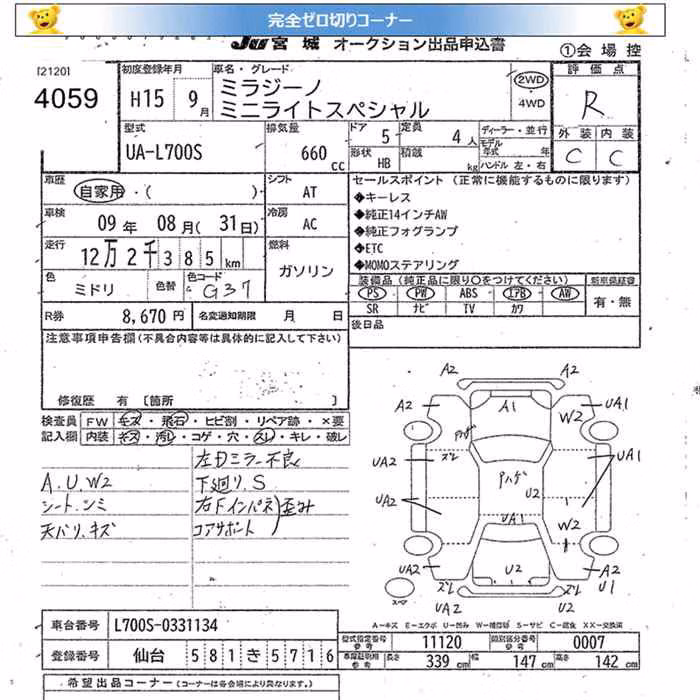 完全ゼロ切りコーナー
JU宮城 オークション出品申込書
①会場控
[2120]
4059
初度登録年月
H15 9月
車名・グレード
ミラジーノ
ミニライトスペシャル
2WD
4WD
評価点
R
外装 内装
C C
型式
UA-L700S
排気量
660 CC
ドア 5
定員 4人
形状 HB
積載 kg
ディーラー・並行
モデル年式 年
ハンドル 左・右
車歴
自家用・( )
シフト
AT
車検
09年 08月(31日)
冷房
AC
走行
12万2千385km
燃料
ガソリン
色
ミドリ
色替
色コード
G37
R券 8,670円
名変通知期限 月 日
セールスポイント (正常に機能するものに限ります)
◆キーレス
◆純正14インチAW
◆純正フォグランプ
◆ETC
◆MOMOステアリング
装備品(純正品に限り○をつけてください)
PS PW ABS エアB AW
SR ナビ TV カワ
新車保証書
有・無
後日品
注意事項申告欄(不具合内容等は具体的に記入して下さい)
修復歴 有 [箇所 ]
検査員記入欄
FW キズ・飛石・ヒビ割・リペア跡・×要
内装 キズ・汚レ・コゲ・穴・スレ・キレ・破レ
左Dミラー不良
A.U.W2
下廻り.S
シート.シミ
右Fインパネ
コアサポート
歪み
天バリ.キズ
A2 A2
A2 A1 UA1
W2
ズレ
UA2 ハゲ UA1
UA2 U2
UA1 W2
UA2 U2 A2
ズレ ズレ U1
UA2 U2
A-キズ E-エクボ U-凹み W-補修跡 S-サビ C-腐食 XX-交換済
車台番号 L700S-0331134
登録番号 仙台 581き5716
型式指定番号 参考 11120
類別区分番号 参考 0007
車庫証明用 参考 長さ 339cm 幅 147cm 高さ 142cm
希望出品コーナー(各会場により異なります。)